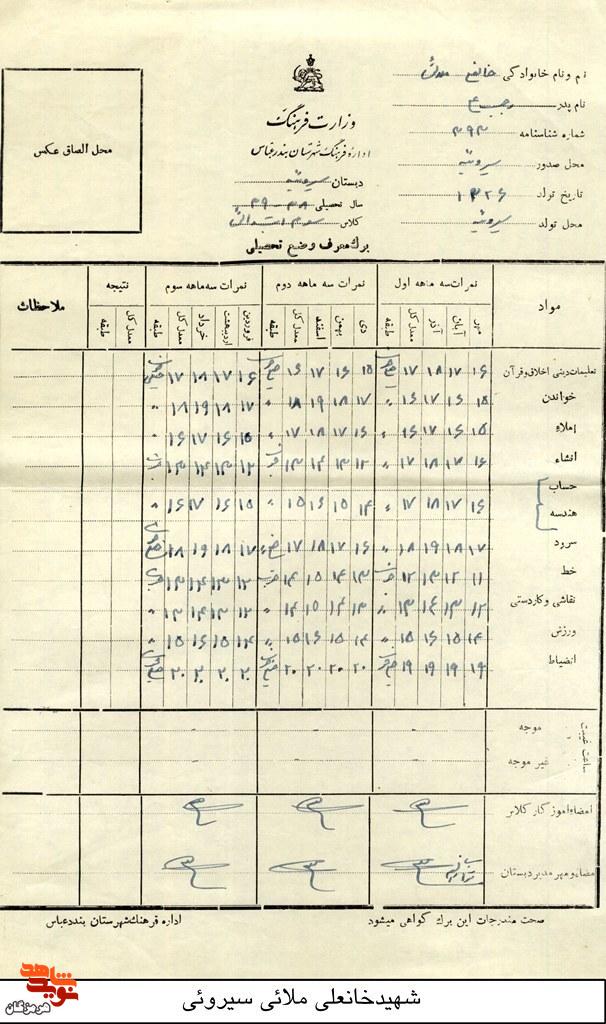 نام و نام خانوادگی خانعلی ملائی
نام پدر رجبعلی
شماره شناسنامه ۳۹۳
محل صدور سیروئیه
تاریخ تولد ۱۳۲۶
محل تولد سیروئیه
وزارت فرهنگ
اداره فرهنگ شهرستان بندرعباس
دبستان سیروئیه
سال تحصیلی ۳۸-۳۹
کلاس سوم ابتدائی
برگ معرف وضع تحصیلی
محل الصاق عکس
مواد نمرات سه ماهه اول نمرات سه ماهه دوم نمرات سه ماهه سوم نتیجه ملاحظات
مهر آبان آذر معدل کل طبقه دی بهمن اسفند معدل کل طبقه فروردین اردیبهشت خرداد معدل کل طبقه معدل کل طبقه
تعلیمات دینی اخلاق و قرآن ۱۶ ۱۷ ۱۸ ۱۷ ۱۵ ۱۶ ۱۷ ۱۶ ۱۶ ۱۷ ۱۸ ۱۷
خواندن ۱۵ ۱۶ ۱۷ ۱۶ ۱۷ ۱۸ ۱۹ ۱۸ ۱۷ ۱۸ ۱۹ ۱۸
املاء ۱۵ ۱۶ ۱۷ ۱۶ ۱۶ ۱۷ ۱۸ ۱۷ ۱۵ ۱۶ ۱۷ ۱۶
انشاء ۱۶ ۱۷ ۱۸ ۱۷ ۱۲ ۱۳ ۱۴ ۱۳ ۱۲ ۱۳ ۱۴ ۱۳
حساب
هندسه ۱۶ ۱۷ ۱۸ ۱۷ ۱۴ ۱۵ ۱۶ ۱۵ ۱۵ ۱۶ ۱۷ ۱۶
سرود ۱۷ ۱۸ ۱۹ ۱۸ ۱۶ ۱۷ ۱۸ ۱۷ ۱۷ ۱۸ ۱۹ ۱۸
خط ۱۱ ۱۲ ۱۳ ۱۲ ۱۳ ۱۴ ۱۵ ۱۴ ۱۲ ۱۳ ۱۴ ۱۳
نقاشی و کاردستی ۱۲ ۱۳ ۱۴ ۱۳ ۱۳ ۱۴ ۱۵ ۱۴ ۱۲ ۱۳ ۱۴ ۱۳
ورزش ۱۴ ۱۵ ۱۶ ۱۵ ۱۴ ۱۵ ۱۶ ۱۵ ۱۴ ۱۵ ۱۶ ۱۵
انضباط ۱۹ ۱۹ ۱۹ ۱۹ ۲۰ ۲۰ ۲۰ ۲۰ ۲۰ ۲۰ ۲۰ ۲۰
ساعت غیبت
موجه
غیر موجه
امضاء آموزگار کلاس
امضاء و مهر مدیر دبستان
صحت مندرجات این برگ گواهی میشود
اداره فرهنگ شهرستان بندرعباس
نوید شاهد
هرمزگان
شهیدخانعلی ملائی سیروئی